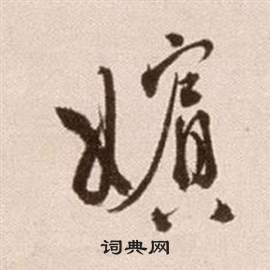 嬪
词典网